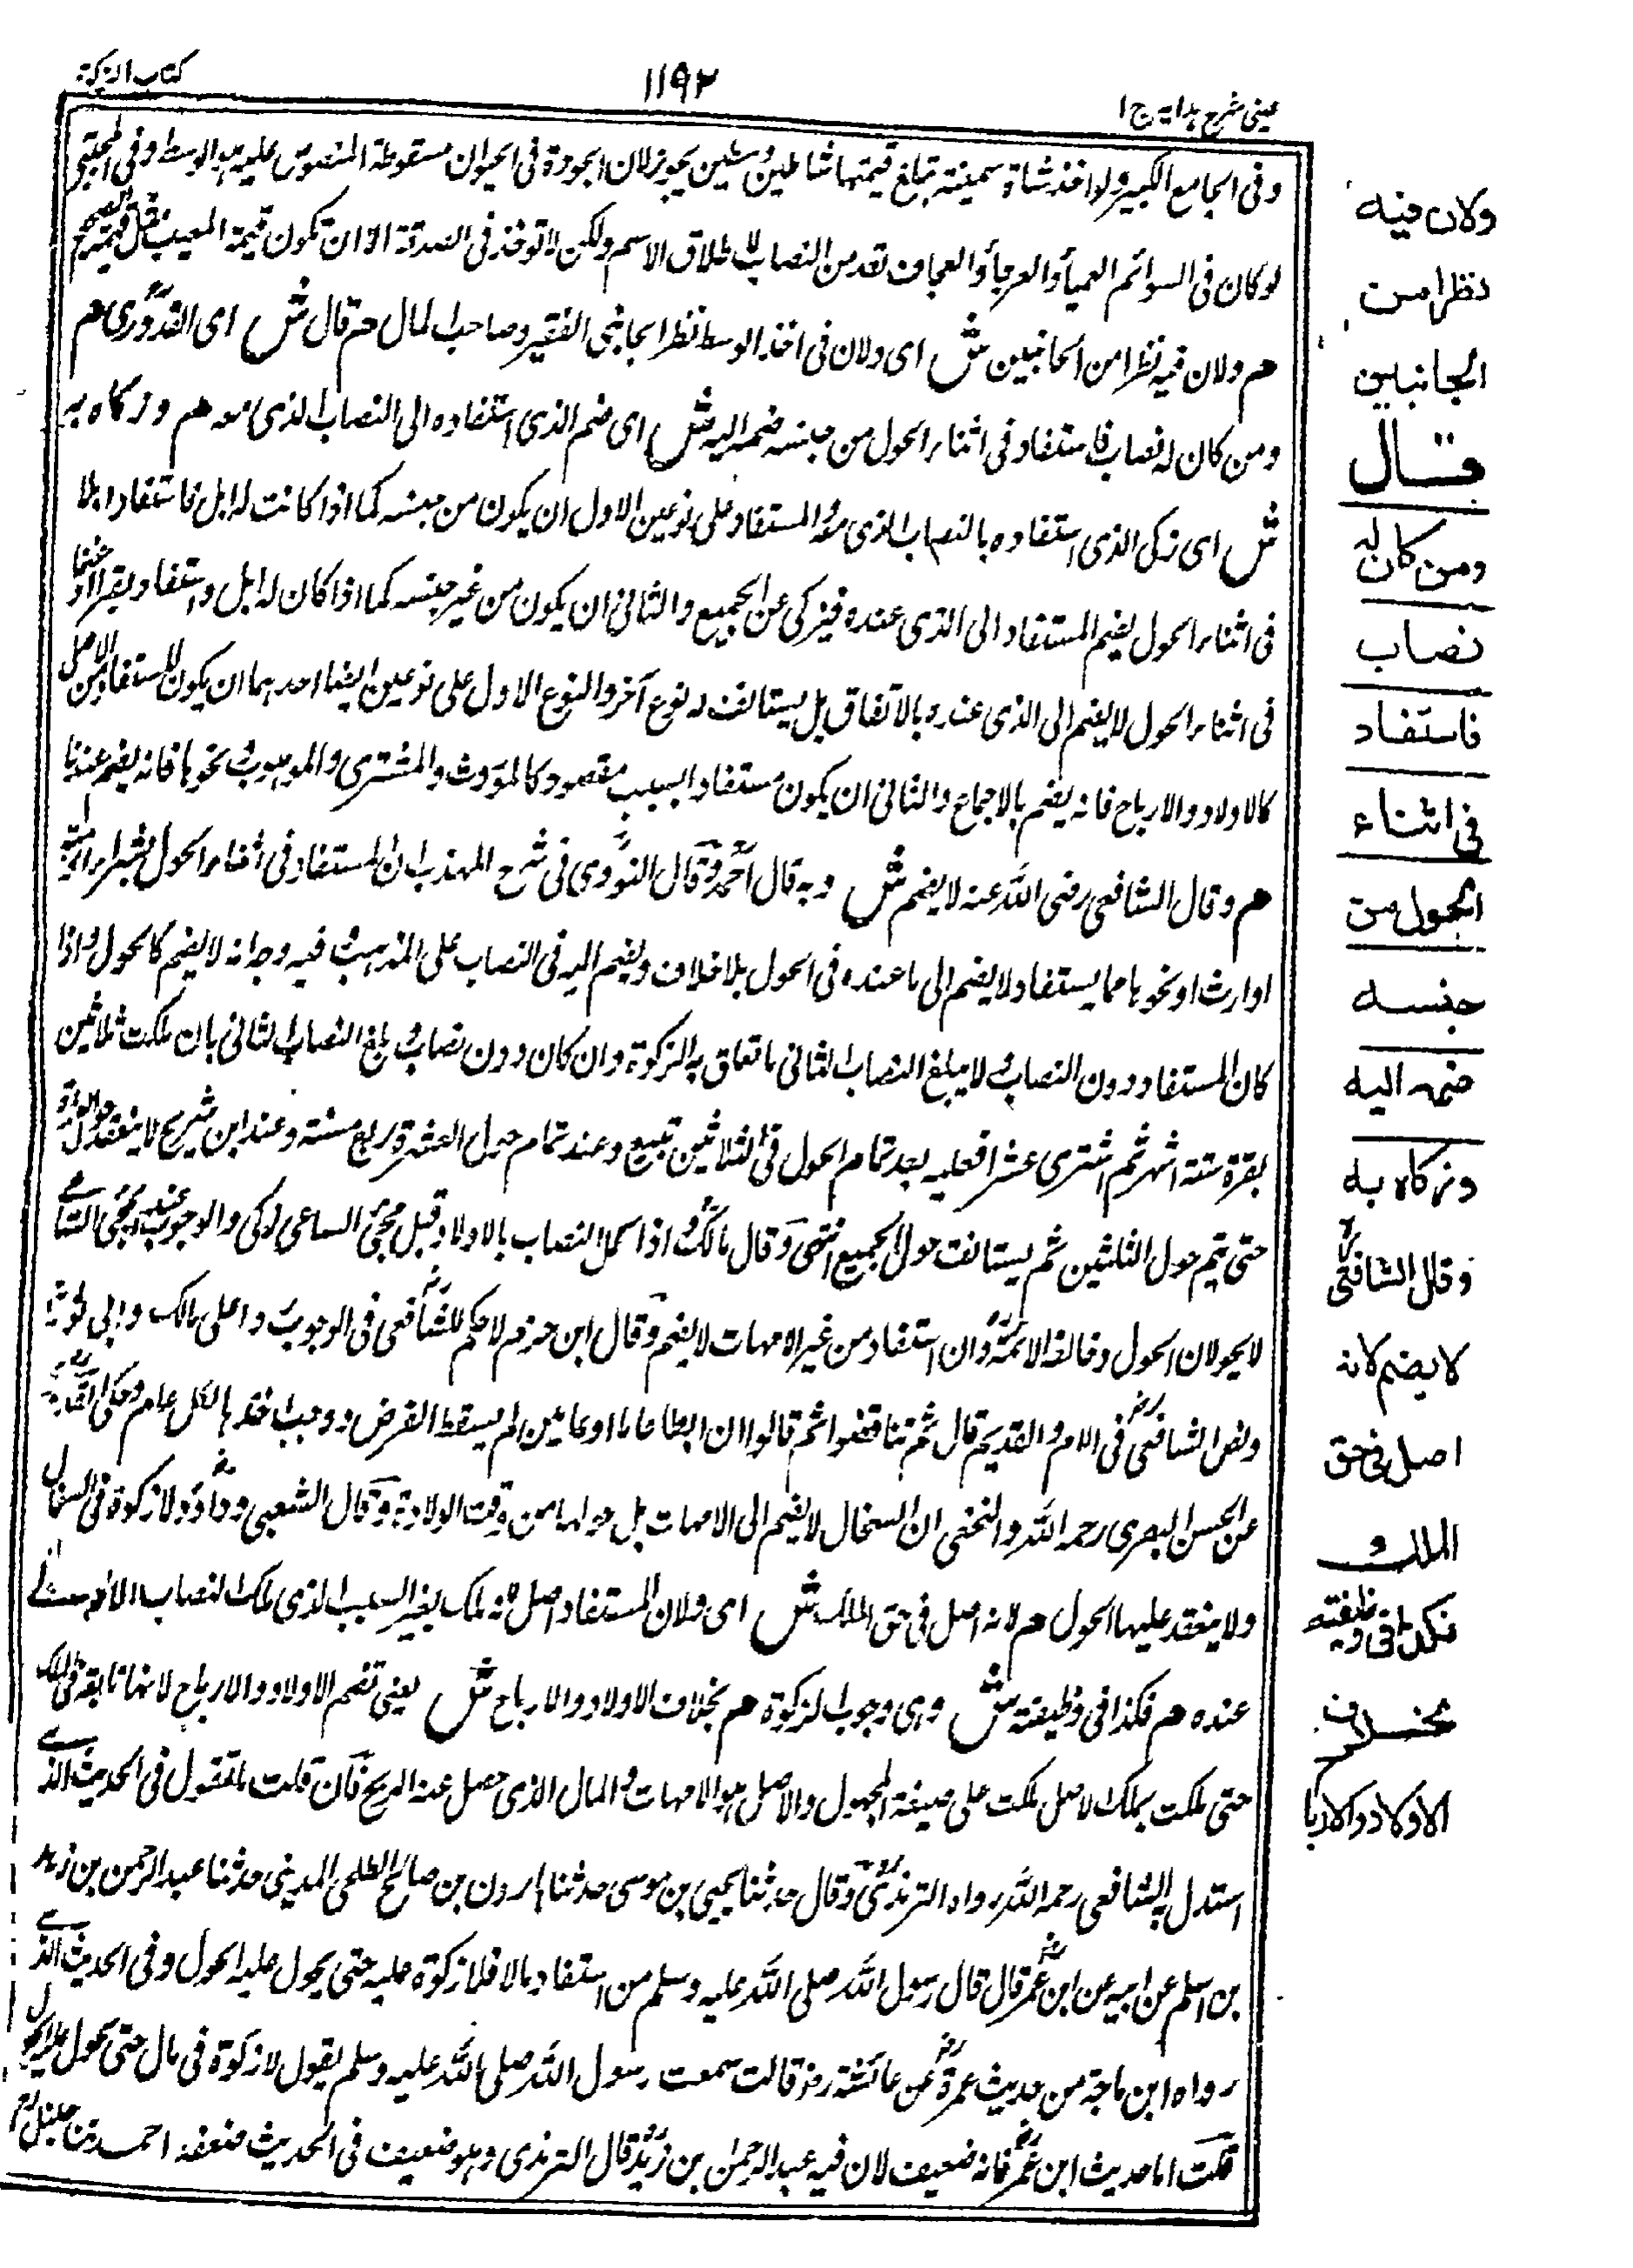 كتاب الزكوة
١١٩٢
عينى شرح هدايه ج ١
وفى الجامع الكبير ولو اخذ شاة سمينة تبلغ قيمتها شاتين وسطين يجوز لان الجودة فى الحيوان مسقوطة المنصوص عليه هو الوسط وفى المجتبى
لو كان فى السوائم العمياء والعرجاء والعجاف تعد من النصاب لاطلاق الاسم ولكن لا تؤخذ فى الصدقة الا ان تكون قيمة المعيب مثل قيمة الصحيح
هم ولان فيه نظرا من الجانبين ش اى ولان فى اخذ الوسط نظرا لجانبى الفقير وصاحب المال هم قال ش اى القدورى هم
ومن كان له نصاب فاستفاد فى اثناء الحول من جنسه ضمه اليه ش اى ضم الذى استفاده الى النصاب الذى معه هم وزكاه به
ش اى زكى الذى استفاده بالنصاب الذى معه والمستفاد على نوعين الاول ان يكون من جنسه كما اذا كانت له ابل فاستفاد ابلا
فى اثناء الحول يضم المستفاد الى الذى عنده فيزكى عن الجميع والثانى ان يكون من غير جنسه كما اذا كان له ابل واستفاد بقرا او غنما
فى اثناء الحول لا يضم الى الذى عنده بالاتفاق بل يستانف له نوع آخر والنوع الاول على نوعين ايضا احدهما ان يكون المستفاد من الاصل
كالاولاد والارباح فانه يضم بالاجماع والثانى ان يكون مستفادا بسبب مقصود كالموروث والمشترى والموهوب ونحوها فانه يضم عندنا
هم وقال الشافعى رضى الله عنه لا يضم ش وبه قال احمد وقال النووى فى شرح المهذب ان المستفاد فى اثناء الحول بشراء او هبة
او ارث او نحوها مما يستفاد لا يضم الى ما عنده فى الحول بلا خلاف ويضم اليه فى النصاب على المذهب وفيه وجه انه لا يضم كالحول واذا
كان المستفاد دون النصاب ولا يبلغ النصاب الثانى ما تعلق به الزكوة وان كان دون نصاب وبلغ النصاب الثانى بان ملكت ثلاثين
بقرة ستة اشهر ثم اشترى عشرا فعليه بعد تمام الحول فى الثلاثين تبيع وعند تمام حول العشرة ربع مسنة وعند ابن شريح لا ينعقد
حتى يتم حول الثلثين ثم يستانف حول الجميع انتهى وقال مالك اذا كمل النصاب بالاولاد قبل مجئ الساعى زكى والوجوب عنده بمجئ الساعى
لا بحولان الحول وخالفه الائمة وان استفاد من غير الامهات لا يضم وقال ابن حزم لا حكم للشافعى فى الوجوب دا على مالك وابى ثور
ونص الشافعى فى الام والقديم قال ثم تناقضوا ثم قالوا ان ابطا عاما او عامين لم يسقط الفرض ووجب اخذها لكل عام وحكى
عن الحسن البصرى رحمه الله والنخعى ان السخال لا يضم الى الامهات بل حولها من وقت الولادة وقال الشعبى وداؤد لا زكوة فى السخال
ولا ينعقد عليها الحول هم لانه اصل فى حق الملك ش اى ولان المستفاد اصل لانه ملك بغير السبب الذى ملك النصاب الاول
عنده هم فكذا فى وظيفته ش وهى وجوب الزكوة هم بخلاف الاولاد والارباح ش يعنى تضم الاولاد والارباح لانها تابعة فى الملك
حتى ملكت بملك الاصل ملكت على صيغة المجهول والاصل هو الامهات والمال الذى حصل عنه الربح فان قلت ما تقول فى الحديث الذى
استدل به الشافعى رحمه الله رواه الترمذى وقال حدثنا يحيى بن موسى حدثنا هارون بن صالح الطلحى المدينى حدثنا عبد الرحمن بن زيد
بن اسلم عن ابيه عن ابن عمر قال قال رسول الله صلى الله عليه وسلم من استفاد مالا فلا زكوة عليه حتى يحول عليه الحول وفى الحديث الذى
رواه ابن ماجة من حديث عمرة عن عائشة رضـ قالت سمعت رسول الله صلى الله عليه وسلم يقول لا زكوة فى مال حتى يحول عليه الحول
قلت اما حديث ابن عمر فانه ضعيف لان فيه عبد الرحمن بن زيد قال الترمذى وهو ضعيف فى الحديث ضعفه احمد بن حنبل
ولان فيه
نظرا من
الجانبين
قال
ومن كان له
نصاب
فاستفاد
فى اثناء
الحول من
جنسه
ضمه اليه
وزكاه به
وقال الشافعى
لا يضم لانه
اصل فى حق
الملك
فكذا فى وظيفته
بخلاف
الاولاد والاربا